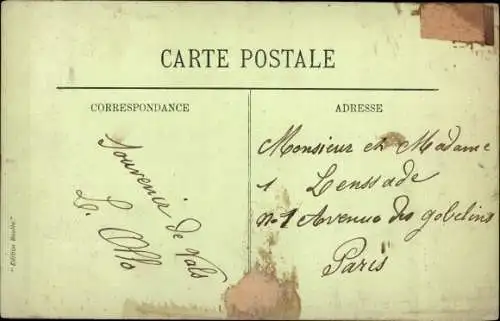 CARTE POSTALE
CORRESPONDANCE
ADRESSE
Souvenir de Vals
L. Ollo
Monsieur et Madame
1 Lenssade
No 1 Avenue des gobelins
Paris
"Edition